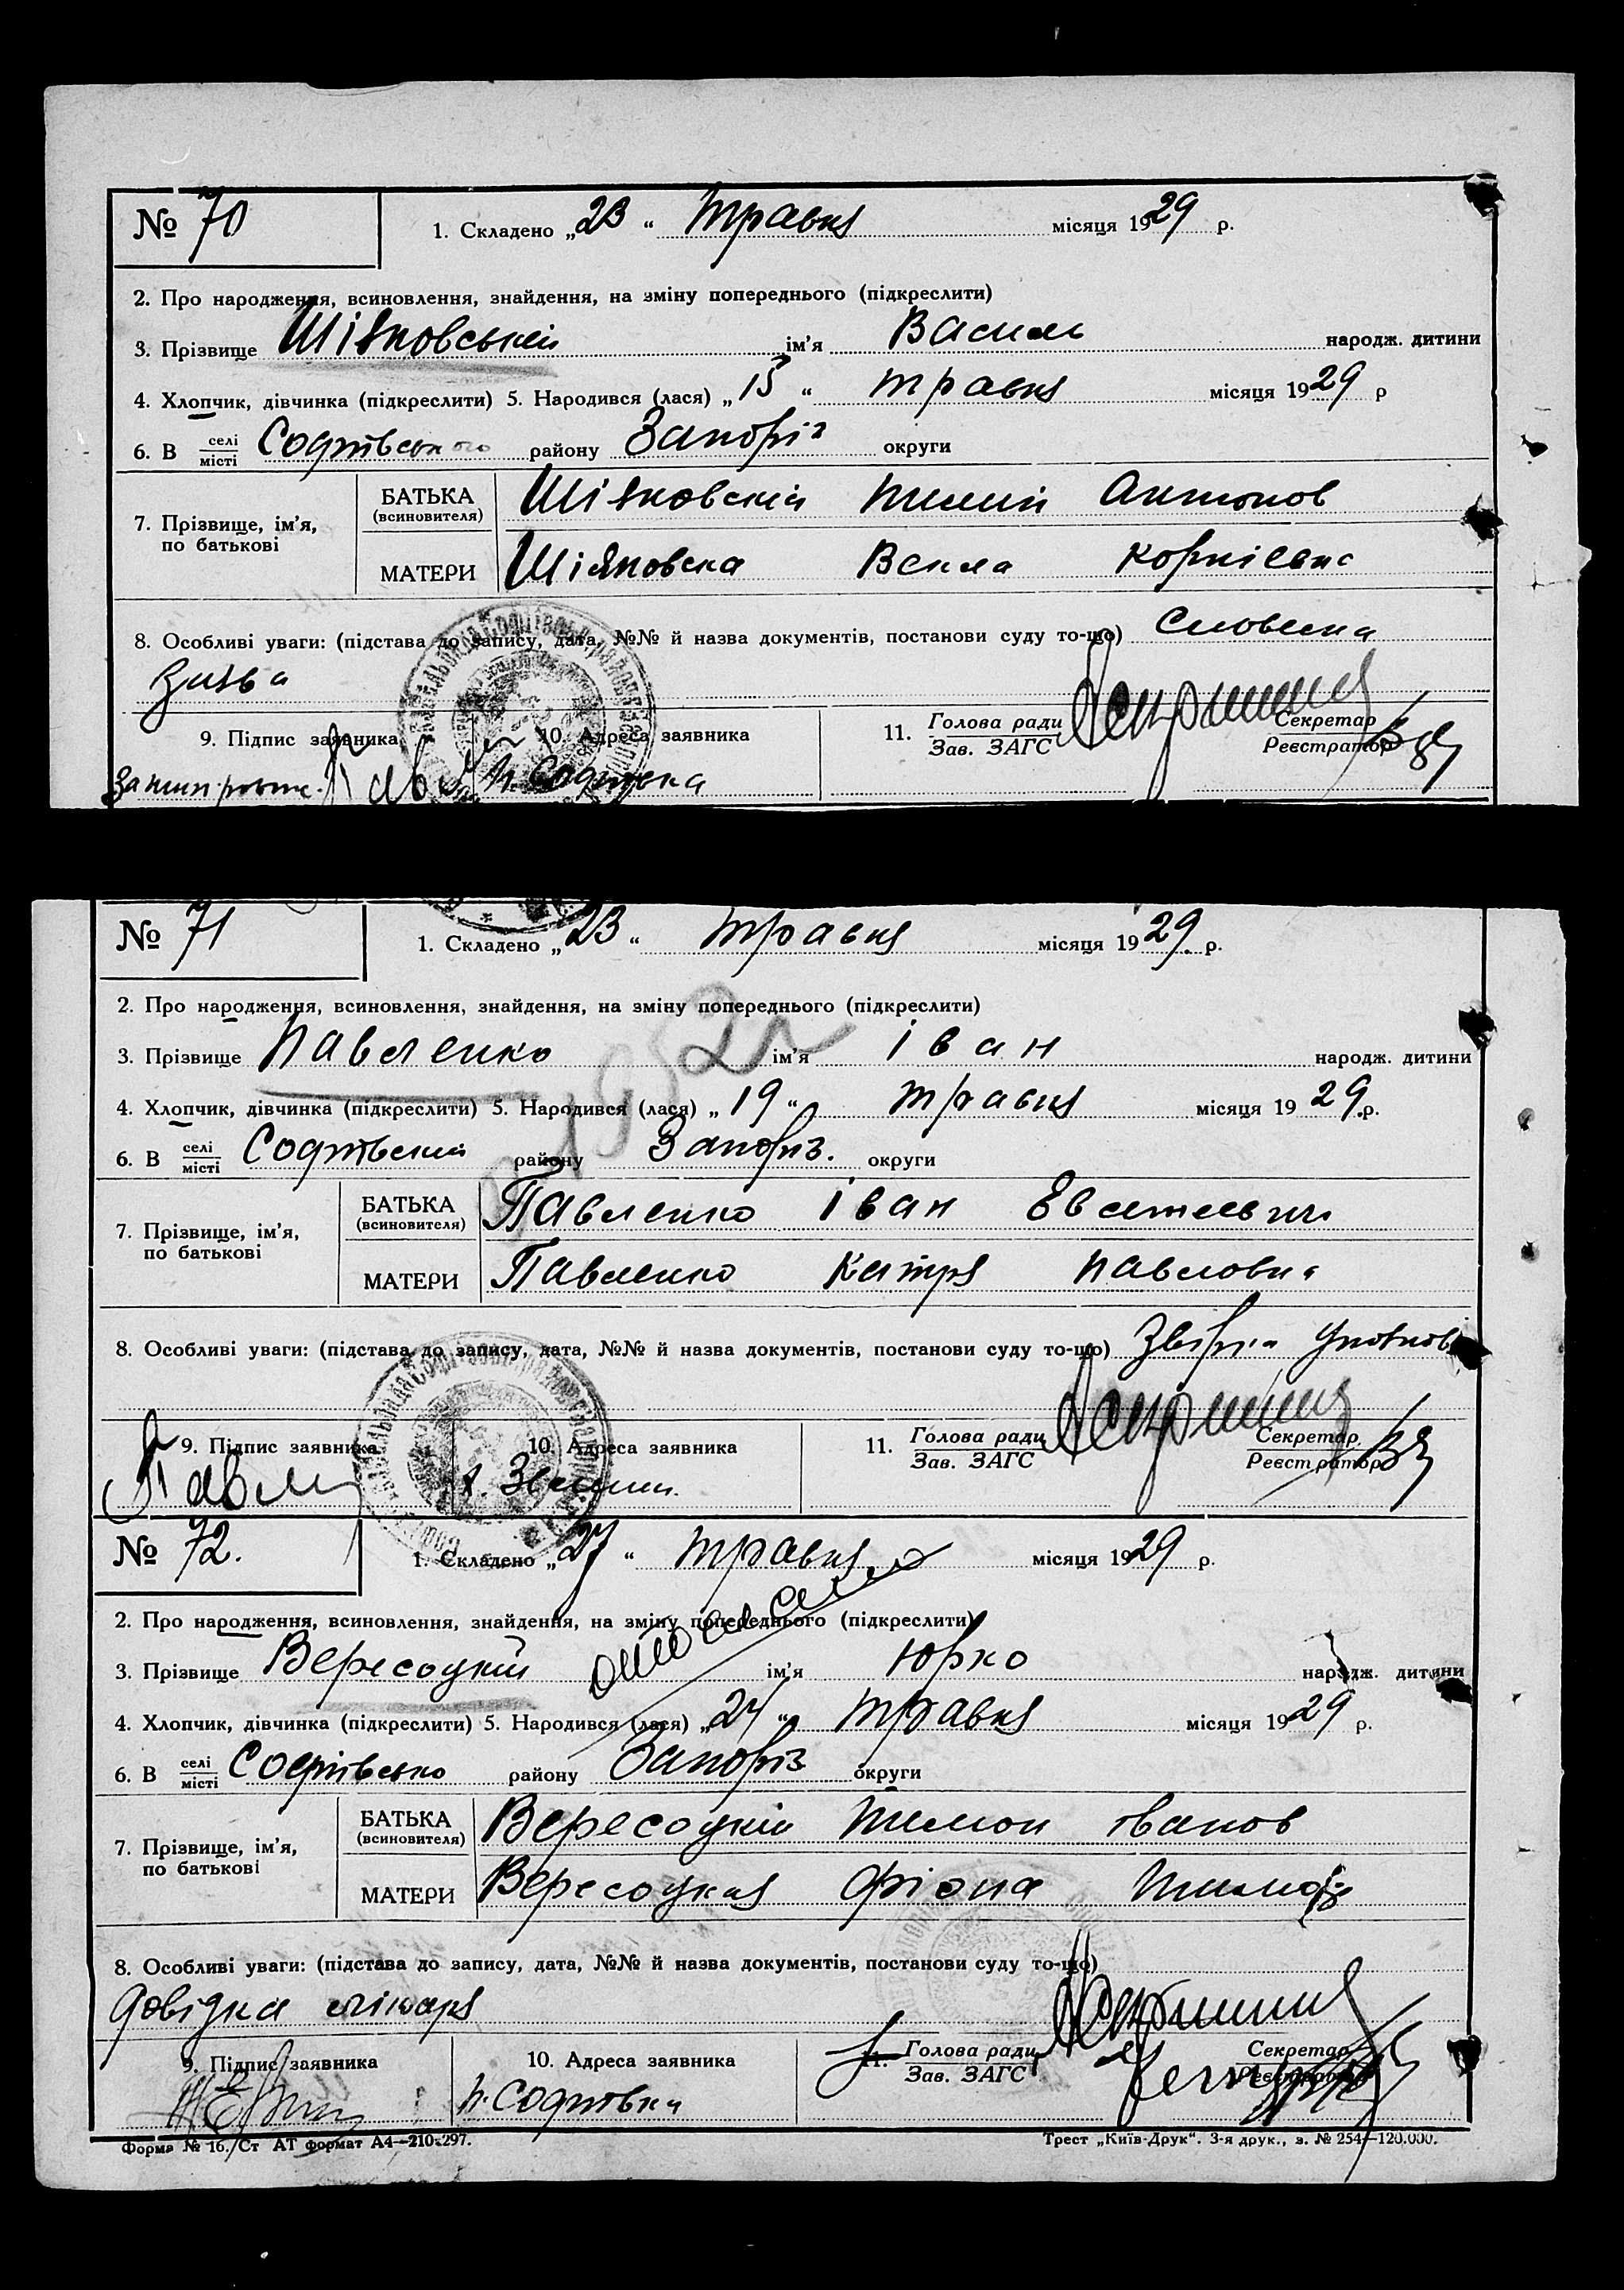 № 70
1. Складено „23“ травня місяця 1929 р.
2. Про народження, всиновлення, знайдення, на зміну попереднього (підкреслити)
3. Прізвище Шіяновській ім’я Василь народж. дитини
4. Хлопчик, дівчинка (підкреслити) 5. Народився (лася) „15“ травня місяця 1929 р
6. В селі/місті Софіївського району Запоріз округи
7. Прізвище, ім’я, по батькові
БАТЬКА (всиновителя) Шіяновскій Тимій Антонов
МАТЕРИ Шіяновска Векла Корніевна
8. Особливі уваги: (підстава до запису, дата, №№ й назва документів, постанови суду то-що) Словесна
Заява
9. Підпис заявника
10. Адреса заявника
с. Софіївка
11. Голова ради
Зав. ЗАГС
Секретар
Реєстратор
№ 71
1. Складено „23“ травня місяця 1929 р.
2. Про народження, всиновлення, знайдення, на зміну попереднього (підкреслити)
3. Прізвище Павленко ім’я Іван народж. дитини
4. Хлопчик, дівчинка (підкреслити) 5. Народився (лася) „19“ травня місяця 1929 р.
6. В селі/місті Софіївський району Запоріз. округи
7. Прізвище, ім’я, по батькові
БАТЬКА (всиновителя) Павленко Іван
МАТЕРИ Павленко Катря Павловна
8. Особливі уваги: (підстава до запису, дата, №№ й назва документів, постанови суду то-що)
9. Підпис заявника
10. Адреса заявника
11. Голова ради
Зав. ЗАГС
Секретар
Реєстратор
№ 72.
1. Складено „27“ травня місяця 1929 р.
2. Про народження, всиновлення, знайдення, на зміну попереднього (підкреслити)
3. Прізвище Вересоцкий ім’я Юрко народж. дитини
4. Хлопчик, дівчинка (підкреслити) 5. Народився (лася) „24“ травня місяця 1929 р.
6. В селі/місті Софіївсько району Запоріз округи
7. Прізвище, ім’я, по батькові
БАТЬКА (всиновителя) Вересоцкій Тимон Іванов
МАТЕРИ Вересоцкая
8. Особливі уваги: (підстава до запису, дата, №№ й назва документів, постанови суду то-що)
Довідка лікаря
9. Підпис заявника
10. Адреса заявника
с. Софіівка
11. Голова ради
Зав. ЗАГС
Секретар
Реєстратор
Форма № 16. Ст АТ формат А4—210×297.
Трест „Київ-Друк“. 3-я друк., з. № 254—120.000.